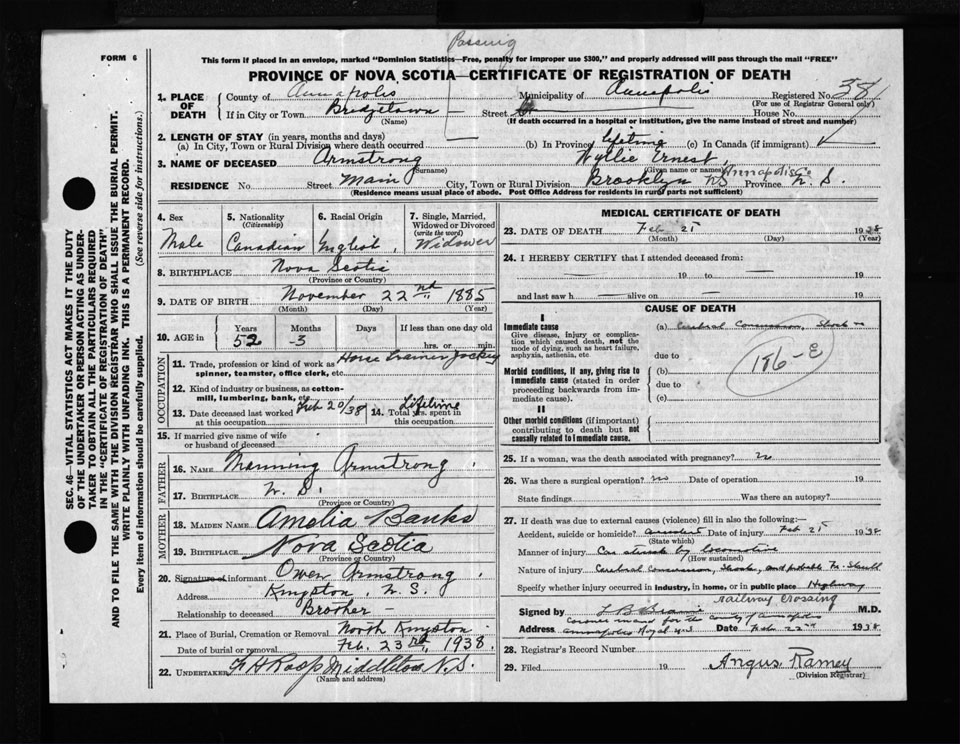 Passing
FORM 6
This form if placed in an envelope, marked "Dominion Statistics—Free, penalty for improper use $300," and properly addressed will pass through the mail "FREE"
PROVINCE OF NOVA SCOTIA—CERTIFICATE OF REGISTRATION OF DEATH
1. PLACE OF DEATH County of Annapolis Municipality of Annapolis Registered No. 38
(For use of Registrar General only)
If in City or Town Bridgetown — Street House No.
(Name) (If death occurred in a hospital or institution, give the name instead of street and number)
2. LENGTH OF STAY (in years, months and days)
(a) In City, Town or Rural Division where death occurred (b) In Province lifetime (c) In Canada (if immigrant)
3. NAME OF DECEASED Armstrong Wyllie Ernest,
(Surname) (Given name or names)
RESIDENCE No. Street Main City, Town or Rural Division Brooklyn NS Annapolis Co Province N. S.
(Residence means usual place of abode. Post Office Address for residents in rural parts not sufficient)
4. Sex Male
5. Nationality (Citizenship) Canadian
6. Racial Origin English
7. Single, Married, Widowed or Divorced (write the word) Widower
8. BIRTHPLACE Nova Scotia
(Province or Country)
9. DATE OF BIRTH November 22nd 1885
(Month) (Day) (Year)
10. AGE in Years 52 Months -3 Days If less than one day old hrs. or min.
OCCUPATION
11. Trade, profession or kind of work as spinner, teamster, office clerk, etc. Horse Trainer Jockey
12. Kind of industry or business, as cotton-mill, lumbering, bank, etc.
13. Date deceased last worked at this occupation Feb 20/38
14. Total yrs. spent in this occupation Lifetime
15. If married give name of wife or husband of deceased
FATHER
16. NAME Manning Armstrong
17. BIRTHPLACE N. S.
(Province or Country)
MOTHER
18. MAIDEN NAME Amelia Banks
19. BIRTHPLACE Nova Scotia
(Province or Country)
20. Signature of informant Owen Armstrong
Address Kingston, N. S.
Relationship to deceased Brother —
21. Place of Burial, Cremation or Removal North Kingston
Date of burial or removal Feb. 23rd, 1938.
22. UNDERTAKER F H Roop Middleton N.S.
(Name and address)
MEDICAL CERTIFICATE OF DEATH
23. DATE OF DEATH Feb 21 1938
(Month) (Day) (Year)
24. I HEREBY CERTIFY that I attended deceased from:
— 19 to — 19
and last saw h — alive on — 19
CAUSE OF DEATH
I
Immediate cause
Give disease, injury or complication which caused death, not the mode of dying, such as heart failure, asphyxia, asthenia, etc
(a) Cerebral Concussion, Shock
due to
Morbid conditions, if any, giving rise to immediate cause (stated in order proceeding backwards from immediate cause).
(b)
due to
(c)
186-E
II
Other morbid conditions (if important) contributing to death but not causally related to immediate cause.
25. If a woman, was the death associated with pregnancy? no
26. Was there a surgical operation? no Date of operation 19
State findings Was there an autopsy?
27. If death was due to external causes (violence) fill in also the following:—
Accident, suicide or homicide? accident Date of injury Feb 21 1938
(State which)
Manner of injury Car struck by locomotive
(How sustained)
Nature of injury Cerebral concussion, Shock, and probable Fr. Skull
Specify whether injury occurred in industry, in home, or in public place Highway
railway crossing
Signed by L B Braine M.D.
Coroner in and for the county of Annapolis
Address Annapolis Royal N.S. Date Feb. 22nd 1938
28. Registrar's Record Number
29. Filed 19 Angus Ramey
(Division Registrar)
SEC. 46—VITAL STATISTICS ACT MAKES IT THE DUTY OF THE UNDERTAKER OR PERSON ACTING AS UNDERTAKER TO OBTAIN ALL THE PARTICULARS REQUIRED IN THE "CERTIFICATE OF REGISTRATION OF DEATH" AND TO FILE THE SAME WITH THE DIVISION REGISTRAR WHO SHALL ISSUE THE BURIAL PERMIT.
WRITE PLAINLY WITH UNFADING INK. THIS IS A PERMANENT RECORD.
Every item of information should be carefully supplied. (See reverse side for instructions.)